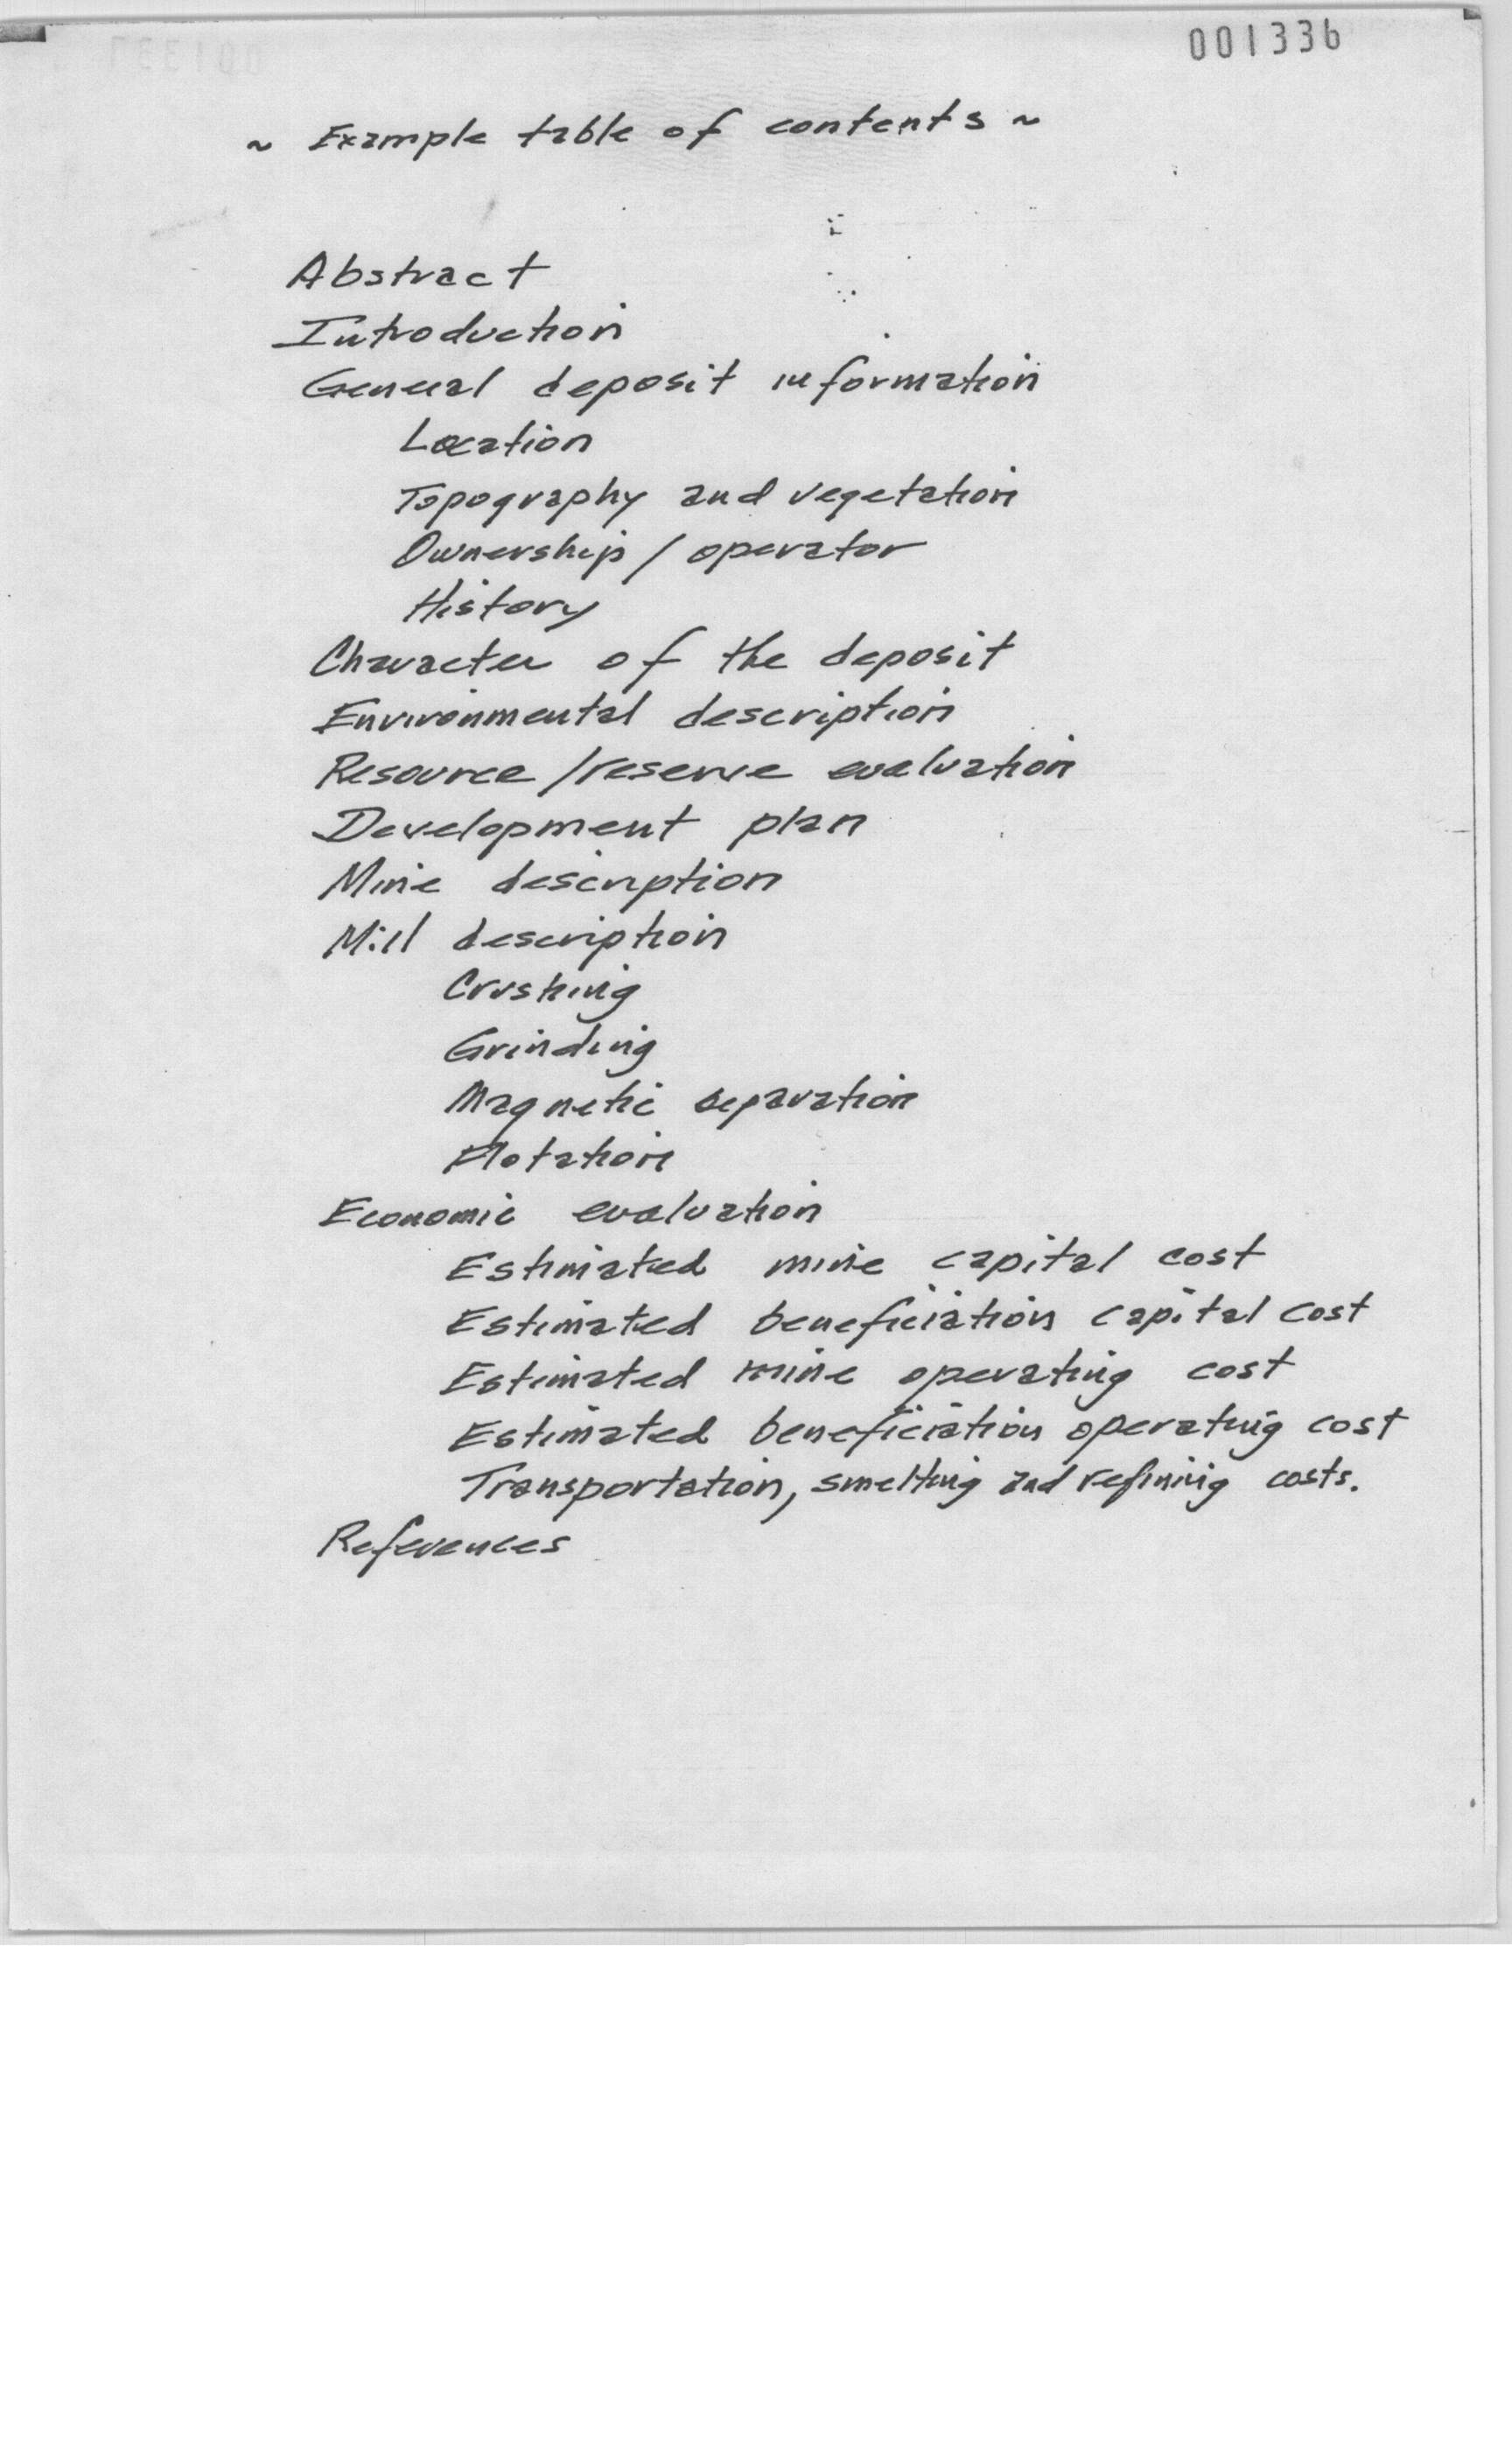 001336
~ Example table of contents ~
Abstract
Introduction
General deposit information
Location
Topography and vegetation
Ownership / operator
History
Character of the deposit
Environmental description
Resource / reserve evaluation
Development plan
Mine description
Mill description
Crushing
Grinding
Magnetic separation
Flotation
Economic evaluation
Estimated mine capital cost
Estimated beneficiation capital cost
Estimated mine operating cost
Estimated beneficiation operating cost
Transportation, smelting and refining costs.
References